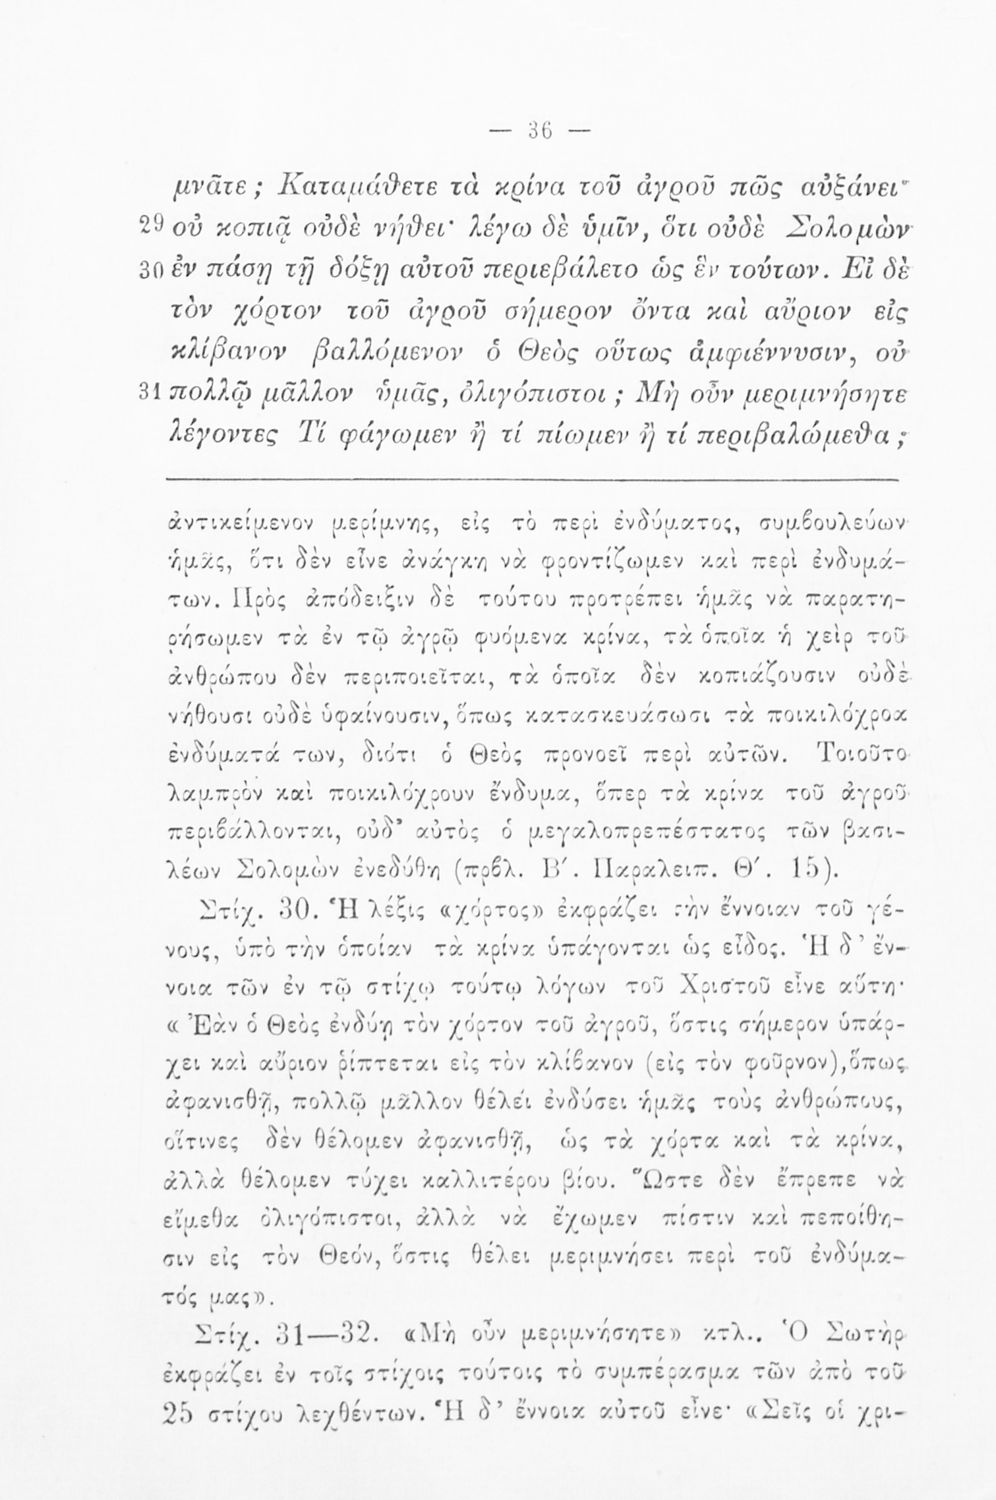 — 36 —
μνᾶτε ; Καταμάθετε τὰ κρίνα τοῦ ἀγροῦ πῶς αὐξάνει·
29 οὐ κοπιᾷ οὐδὲ νήθει· λέγω δὲ ὑμῖν, ὅτι οὐδὲ Σολομὼν
30 ἐν πάσῃ τῇ δόξῃ αὐτοῦ περιεβάλετο ὡς ἓν τούτων. Εἰ δὲ
τὸν χόρτον τοῦ ἀγροῦ σήμερον ὄντα καὶ αὔριον εἰς
κλίβανον βαλλόμενον ὁ Θεὸς οὕτως ἀμφιέννυσιν, οὐ
31 πολλῷ μᾶλλον ὑμᾶς, ὀλιγόπιστοι ; Μὴ οὖν μεριμνήσητε
λέγοντες Τί φάγωμεν ἢ τί πίωμεν ἢ τί περιβαλώμεθα ;
ἀντικείμενον μερίμνης, εἰς τὸ περὶ ἐνδύματος, συμβουλεύων
ἡμᾶς, ὅτι δὲν εἶνε ἀνάγκη νὰ φροντίζωμεν καὶ περὶ ἐνδυμά-
των. Πρὸς ἀπόδειξιν δὲ τούτου προτρέπει ἡμᾶς νὰ παρατη-
ρήσωμεν τὰ ἐν τῷ ἀγρῷ φυόμενα κρίνα, τὰ ὁποῖα ἡ χεὶρ τοῦ
ἀνθρώπου δὲν περιποιεῖται, τὰ ὁποῖα δὲν κοπιάζουσιν οὐδὲ
νήθουσι οὐδὲ ὑφαίνουσιν, ὅπως κατασκευάσωσι τὰ ποικιλόχροα
ἐνδύματά των, διότι ὁ Θεὸς προνοεῖ περὶ αὐτῶν. Τοιοῦτο
λαμπρὸν καὶ ποικιλόχρουν ἔνδυμα, ὅπερ τὰ κρίνα τοῦ ἀγροῦ
περιβάλλονται, οὐδ' αὐτὸς ὁ μεγαλοπρεπέστατος τῶν βασι-
λέων Σολομὼν ἐνεδύθη (πρβλ. Β′. Παραλειπ. Θ′. 15).
Στίχ. 30. Ἡ λέξις «χόρτος» ἐκφράζει τὴν ἔννοιαν τοῦ γέ-
νους, ὑπὸ τὴν ὁποίαν τὰ κρίνα ὑπάγονται ὡς εἶδος. Ἡ δ' ἔν-
νοια τῶν ἐν τῷ στίχῳ τούτῳ λόγων τοῦ Χριστοῦ εἶνε αὕτη·
« Ἐὰν ὁ Θεὸς ἐνδύῃ τὸν χόρτον τοῦ ἀγροῦ, ὅστις σήμερον ὑπάρ-
χει καὶ αὔριον ῥίπτεται εἰς τὸν κλίβανον (εἰς τὸν φοῦρνον),ὅπως
ἀφανισθῇ, πολλῷ μᾶλλον θέλει ἐνδύσει ἡμᾶς τοὺς ἀνθρώπους,
οἵτινες δὲν θέλομεν ἀφανισθῇ, ὡς τὰ χόρτα καὶ τὰ κρίνα,
ἀλλὰ θέλομεν τύχει καλλιτέρου βίου. Ὥστε δὲν ἔπρεπε νὰ
εἴμεθα ὀλιγόπιστοι, ἀλλὰ νὰ ἔχωμεν πίστιν καὶ πεποίθη-
σιν εἰς τὸν Θεόν, ὅστις θέλει μεριμνήσει περὶ τοῦ ἐνδύμα-
τός μας».
Στίχ. 31—32. «Μὴ οὖν μεριμνήσητε» κτλ.. Ὁ Σωτὴρ
ἐκφράζει ἐν τοῖς στίχοις τούτοις τὸ συμπέρασμα τῶν ἀπὸ τοῦ
25 στίχου λεχθέντων. Ἡ δ' ἔννοια αὐτοῦ εἶνε· «Σεῖς οἱ χρι-